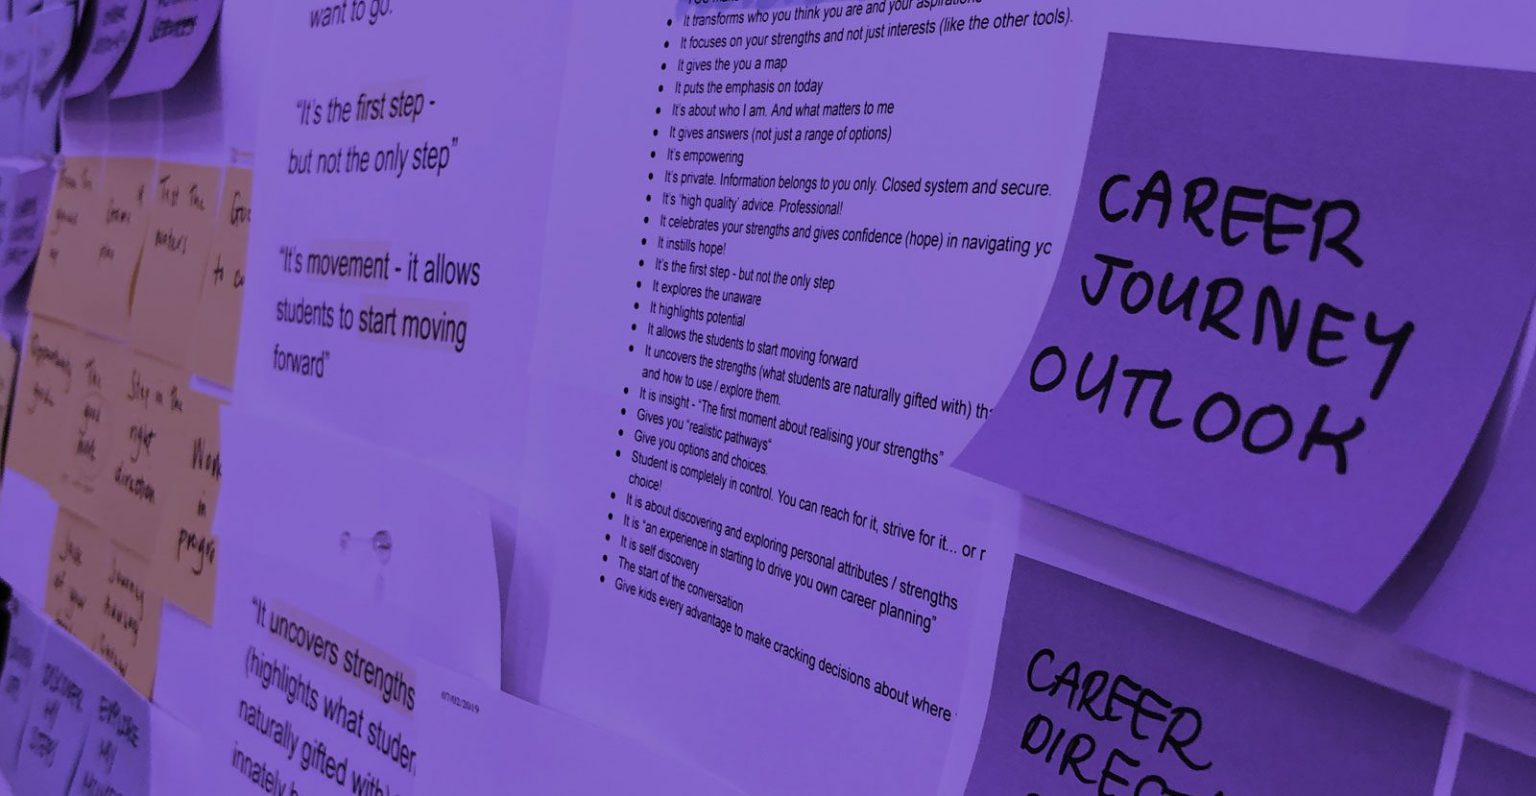 want to go.
"It's the first step -
but not the only step"
"It's movement - it allows
students to start moving
forward"
"It uncovers strengths
(highlights what studen
naturally gifted with)
innately
07/02/2019
It transforms who you think you are and your aspirations
• It focuses on your strengths and not just interests (like the other tools).
• It gives the you a map
• It puts the emphasis on today
• It's about who I am. And what matters to me
• It gives answers (not just a range of options)
• It's empowering
• It's private. Information belongs to you only. Closed system and secure.
• It's 'high quality' advice. Professional!
• It celebrates your strengths and gives confidence (hope) in navigating yo
• It instills hope!
• It's the first step - but not the only step
• It explores the unaware
• It highlights potential
• It allows the students to start moving forward
• It uncovers the strengths (what students are naturally gifted with) tha
and how to use / explore them.
• It is insight - "The first moment about realising your strengths"
• Gives you "realistic pathways"
• Give you options and choices.
• Student is completely in control. You can reach for it, strive for it... or r
choice!
• It is about discovering and exploring personal attributes / strengths
• It is "an experience in starting to drive you own career planning"
• It is self discovery
• The start of the conversation
• Give kids every advantage to make cracking decisions about where
CAREER
JOURNEY
OUTLOOK
CAREER
DIRECT
Test The
waters
The
good
Step in The
right
direction
Work
in
progre
Journey
DISCOVER
MY
STORY
EXPLORE
MY